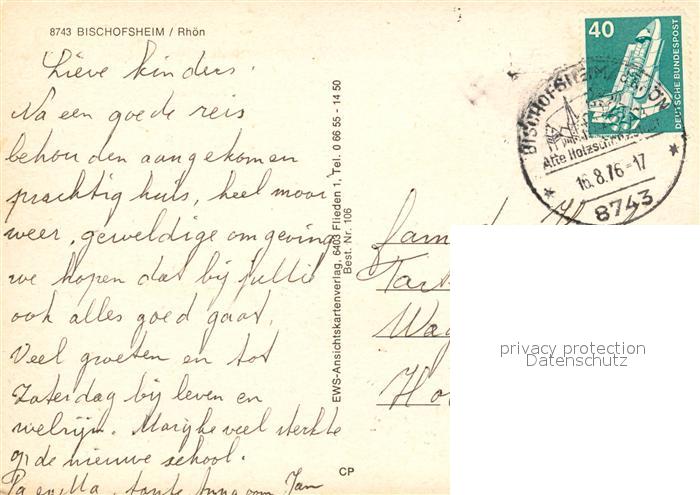 8743 BISCHOFSHEIM / Rhön
Lieve kinders.
Na een goede reis
behouden aangekomen
prachtig huis, heel mooi
weer, geweldige omgeving
we hopen dat bij jullie
ook alles goed gaat.
Veel groeten en tot
Zaterdag bij leven en
welzijn. Marijke veel sterkte
op de nieuwe school.
Pa en Ma, tante Anna oom Jan
CP
EWS-Ansichtskartenverlag, 6403 Flieden 1, Tel. 0 66 55 - 14 50
Best. Nr. 106
40
DEUTSCHE BUNDESPOST
BISCHOFSHEIM RHÖN
Alte
16.8.76-17
8743
Fam
Wag
privacy protection
Datenschutz